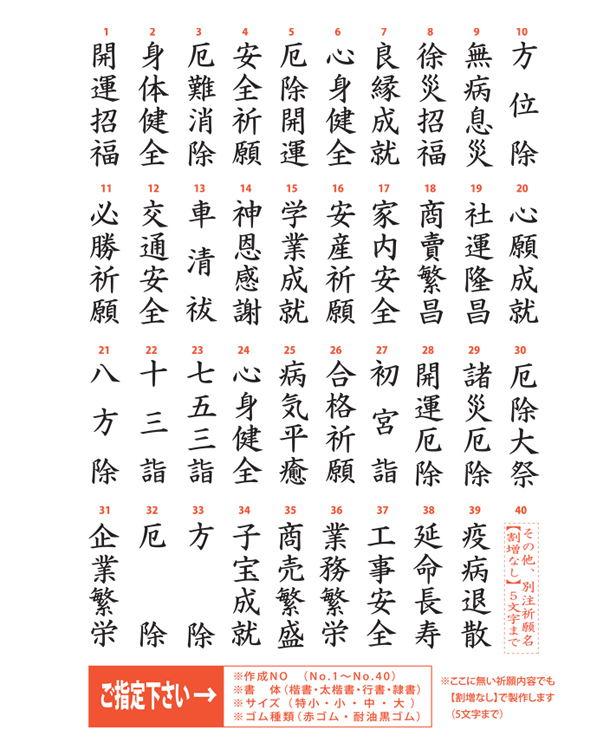 1 開運招福
2 身体健全
3 厄難消除
4 安全祈願
5 厄除開運
6 心身健全
7 良縁成就
8 徐災招福
9 無病息災
10 方位除
11 必勝祈願
12 交通安全
13 車清祓
14 神恩感謝
15 学業成就
16 安産祈願
17 家内安全
18 商賣繁昌
19 社運隆昌
20 心願成就
21 八方除
22 十三詣
23 七五三詣
24 心身健全
25 病気平癒
26 合格祈願
27 初宮詣
28 開運厄除
29 諸災厄除
30 厄除大祭
31 企業繁栄
32 厄除
33 方除
34 子宝成就
35 商売繁盛
36 業務繁栄
37 工事安全
38 延命長寿
39 疫病退散
40 その他、別注祈願名
【割増なし】5文字まで
ご指定下さい→
※作成NO （No.1〜No.40）
※書 体（楷書・太楷書・行書・隷書）
※サイズ（特小・小・中・大）
※ゴム種類（赤ゴム・耐油黒ゴム）
※ここに無い祈願内容でも
【割増なし】で製作します
（5文字まで）